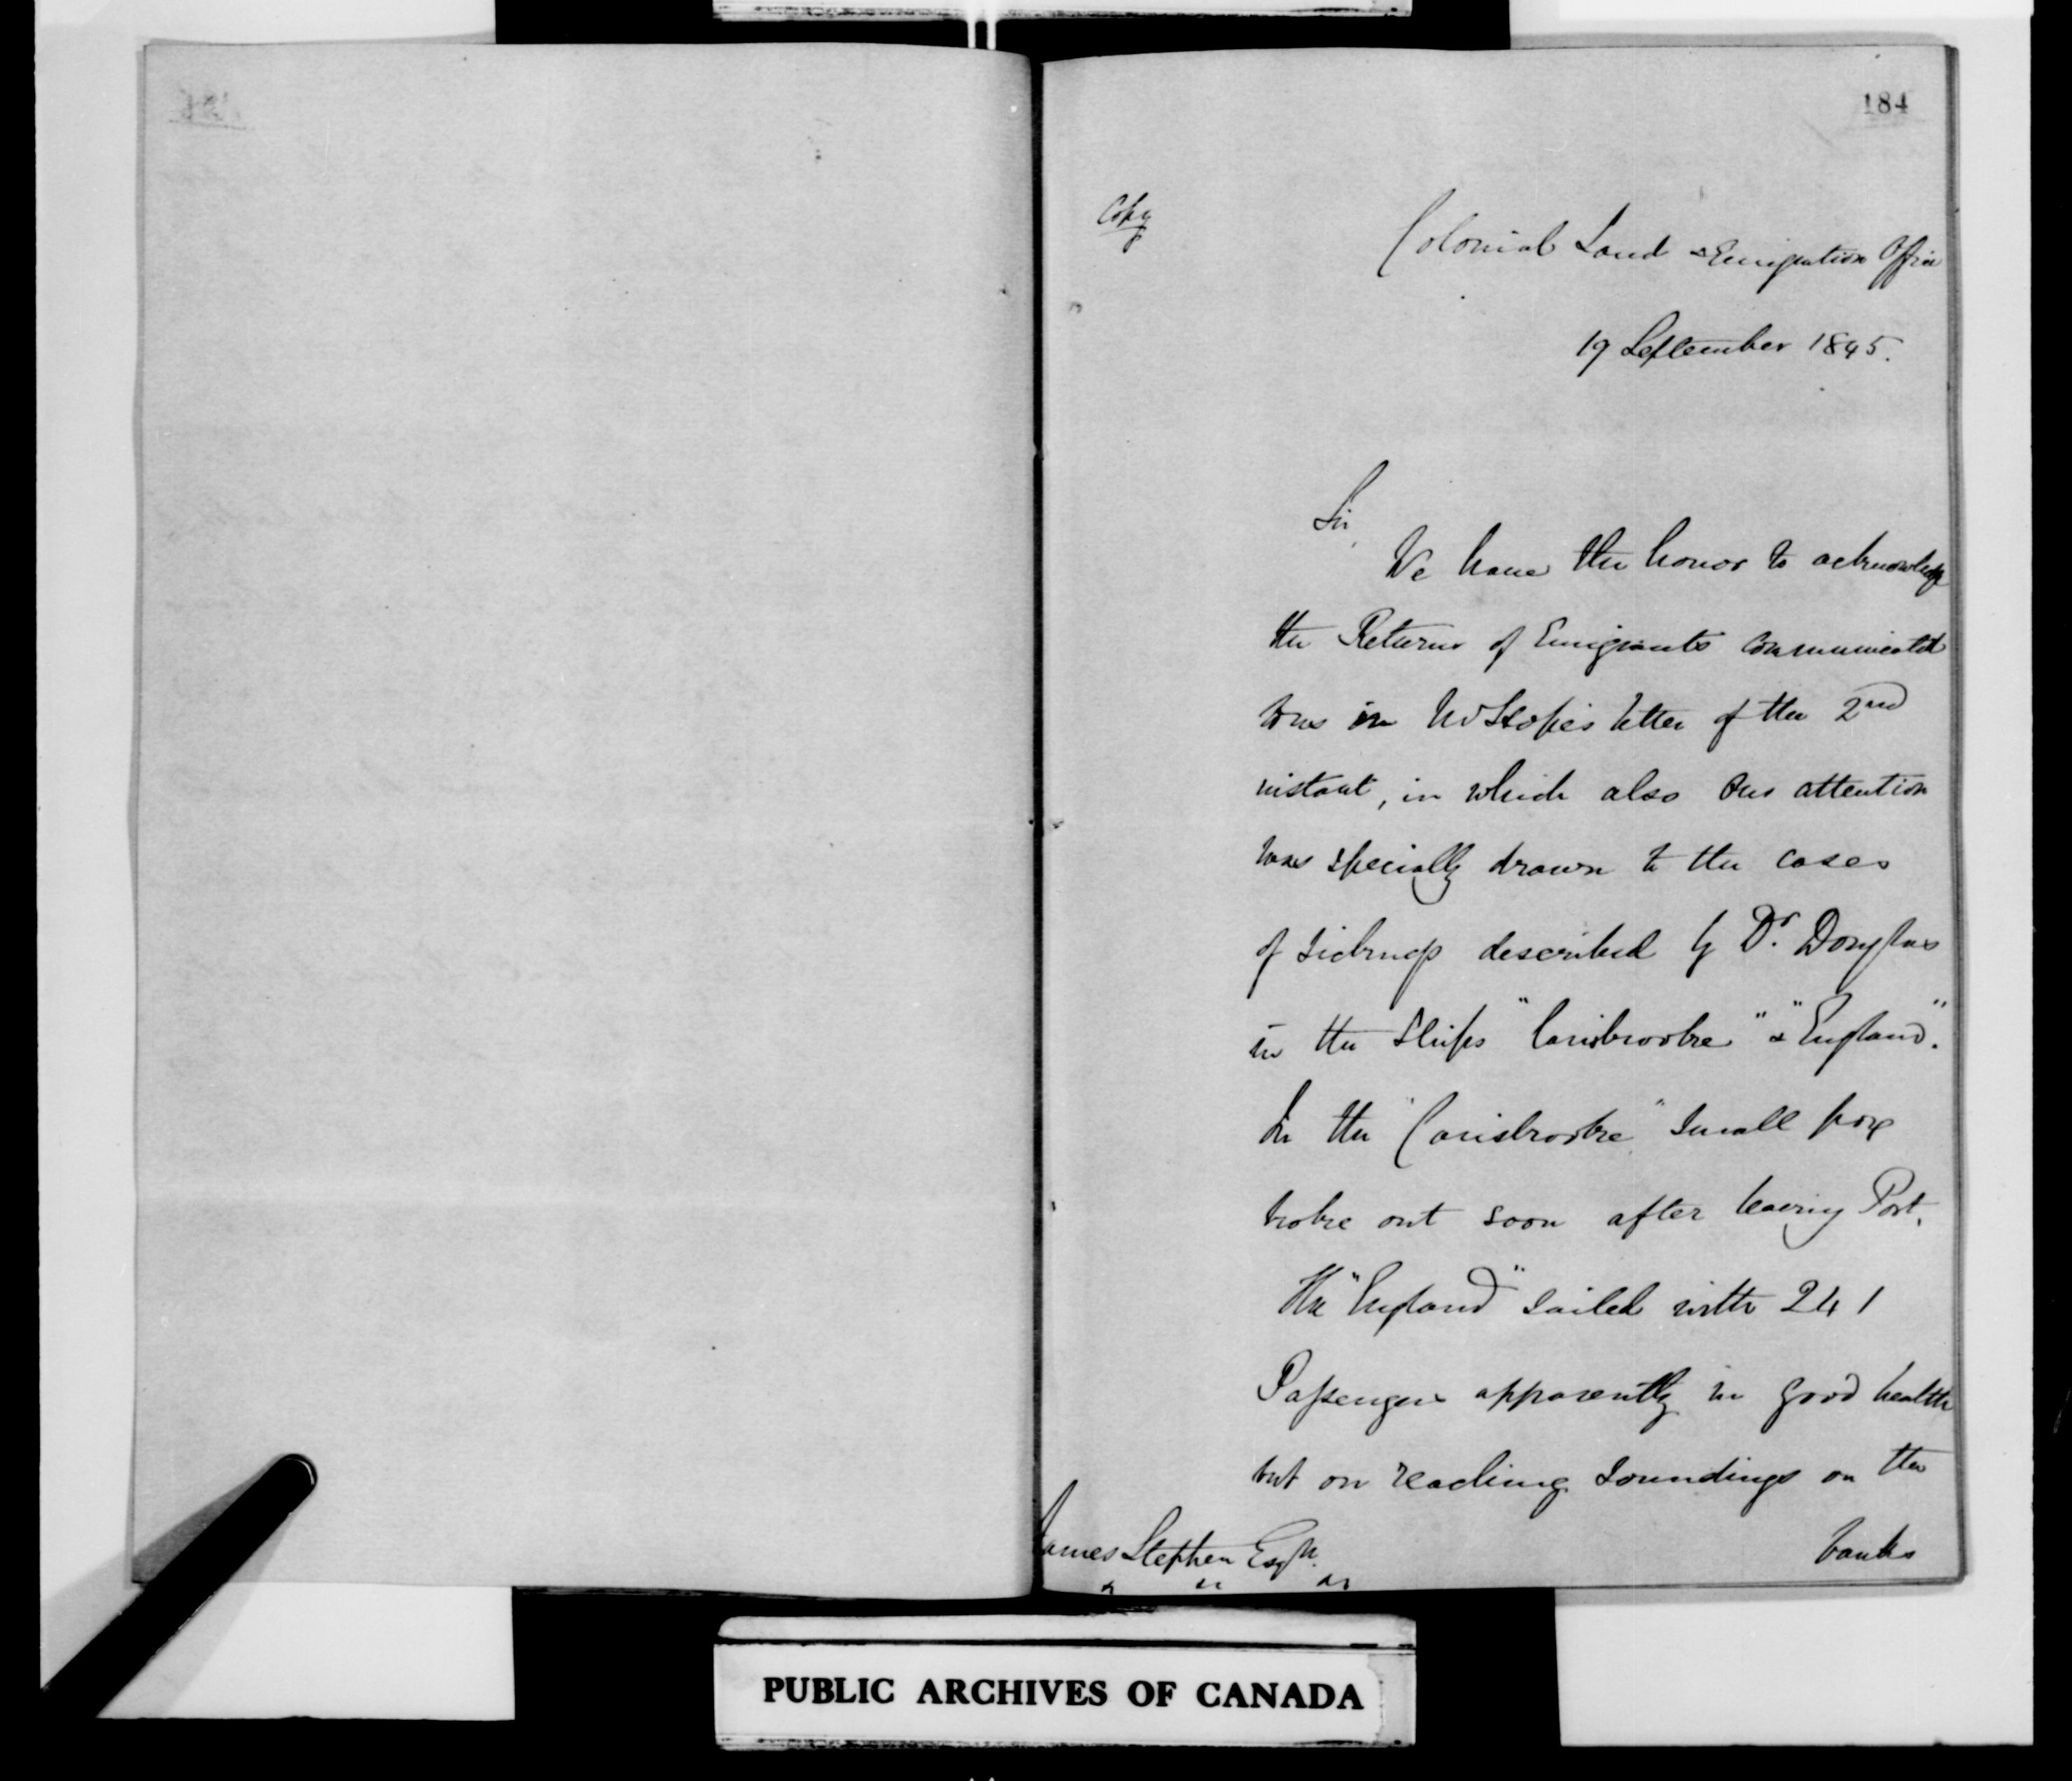 184
Copy
Colonial Land & Emigration Office
19 September 1845.
Sir,
We have the honor to acknowledge
the Returns of Emigrants communicated
to us in Mr Hope's letter of the 2nd
instant, in which also our attention
was specially drawn to the cases
of sickness described by Dr. Douglas
in the Ships "Carisbrooke" & "England".
In the "Carisbrooke" Small pox
broke out soon after leaving Port.
The "England" sailed with 241
Passengers apparently in good health
but on reaching Soundings on the
banks
James Stephen Esqre.
PUBLIC ARCHIVES OF CANADA